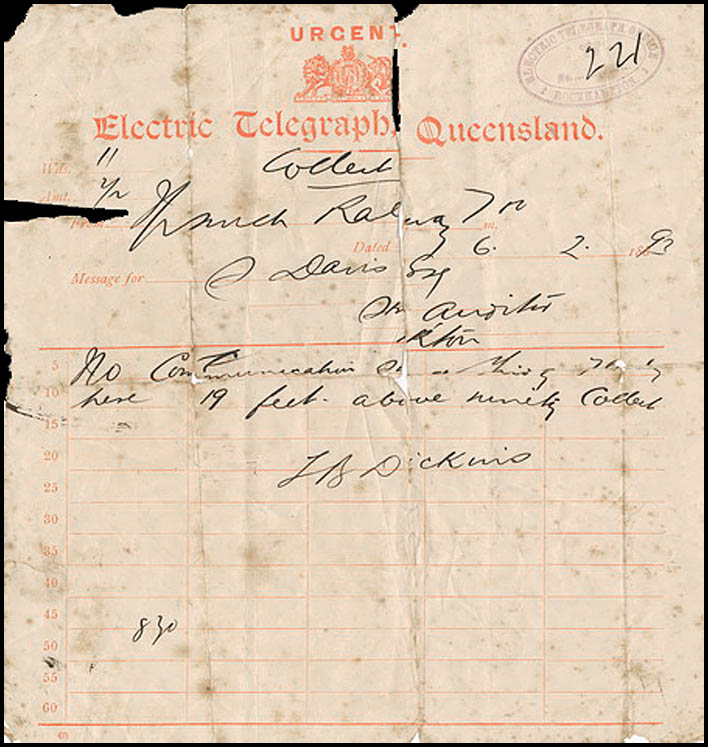 URGENT.
ELECTRIC TELEGRAPH OFFICE
No. 221
ROCKHAMPTON
Electric Telegraph, Queensland.
Wds. 11
Collect
Amt. 2/2
From Ipswich Railway 7 m.
Dated 6. 2. 1893
Message for J Davis Esq
Auditor
Rkton
5
No Communication
10
here 19 feet above ninety Collect
15
20
J B Dickins
25
30
35
40
45
830
50
55
60